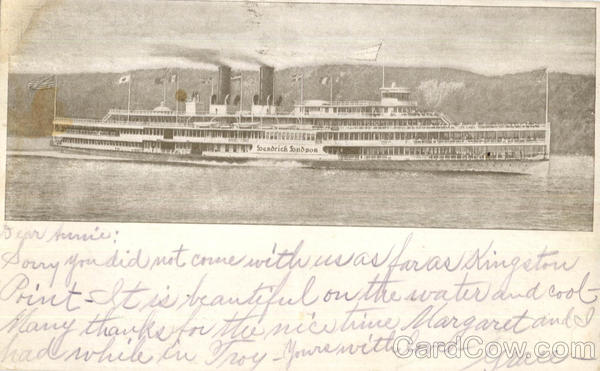 Hendrick Hudson
Dear Annie:
Sorry you did not come with us as far as Kingston
Point - It is beautiful on the water and cool
Many thanks for the nice time Margaret and I
had while in Troy - Yours with
CardCow.com